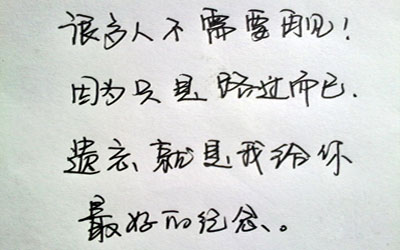 很多人不需要再见！
因为只是路过而已．
遗忘就是我给你
最好的纪念。